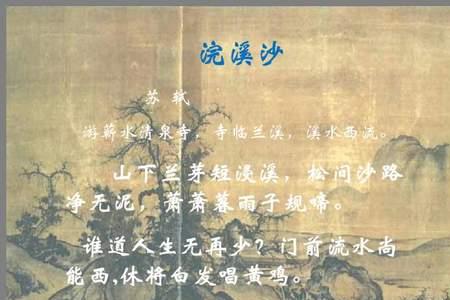 浣溪沙
苏 轼
游蕲水清泉寺，寺临兰溪，溪水西流。
山下兰芽短浸溪，松间沙路
净无泥，萧萧暮雨子规啼。
谁道人生无再少？门前流水尚
能西,休将白发唱黄鸡。